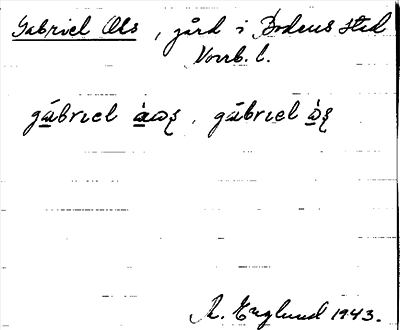 Gabriel Ols, gård i Bodens stad
Norrb. l.
gábriel , gábriel
R. Englund 1943.